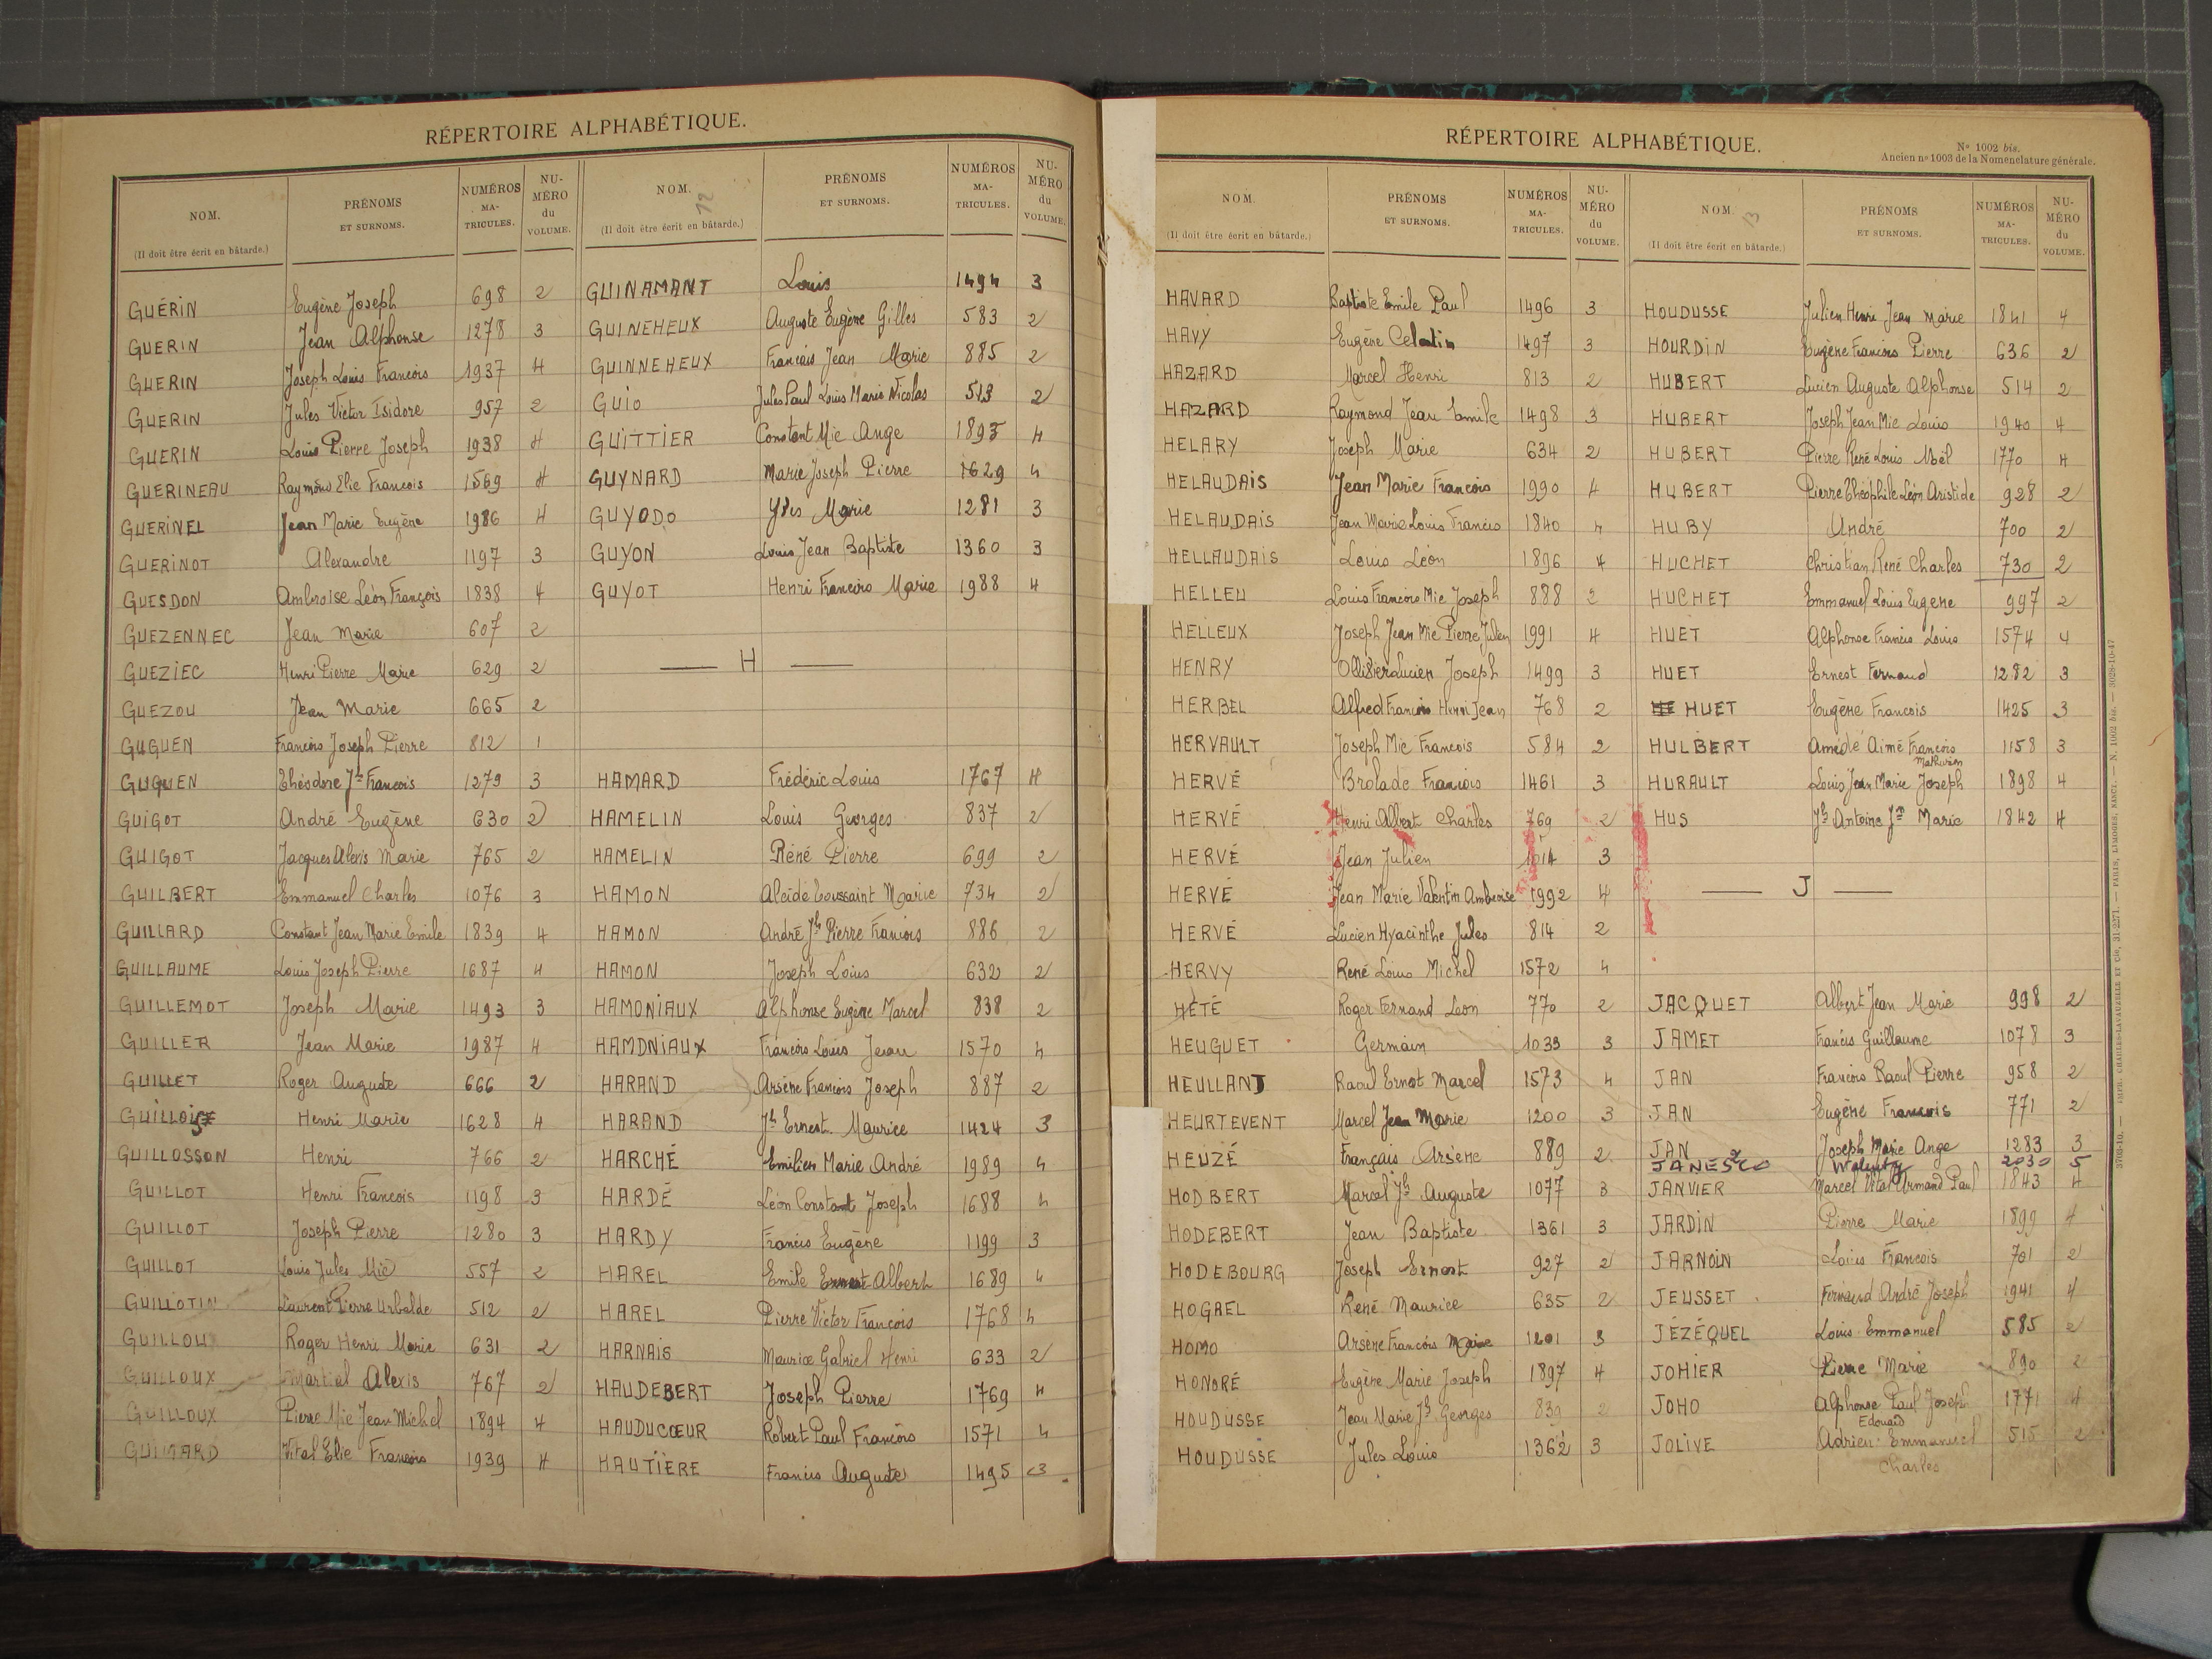 RÉPERTOIRE ALPHABÉTIQUE.
NOM. (Il doit être écrit en bâtarde.) PRÉNOMS ET SURNOMS. NUMÉROS MA-TRICULES. NU-MÉRO du VOLUME.
GUÉRIN Eugène Joseph 698 2
GUERIN Jean Alphonse 1278 3
GUERIN Joseph Louis Francois 1937 4
GUERIN Jules Victor Isidore 957 2
GUERIN Louis Pierre Joseph 1938 4
GUERINEAU Raymond Elie Francois 1569 4
GUERINEL Jean Marie Eugène 1986 4
GUERINOT Alexandre 1197 3
GUESDON Ambroise Léon François 1838 4
GUEZENNEC Jean Marie 607 2
GUEZIEC Henri Pierre Marie 629 2
GUEZOU Jean Marie 665 2
GUGUEN Francois Joseph Pierre 812 1
GUGUEN Théodore Jh Francois 1279 3
GUIGOT André Eugène 630 2
GUIGOT Jacques Alexis Marie 765 2
GUILBERT Emmanuel Charles 1076 3
GUILLARD Constant Jean Marie Emile 1839 4
GUILLAUME Louis Joseph Pierre 1687 4
GUILLEMOT Joseph Marie 1493 3
GUILLER Jean Marie 1987 4
GUILLET Roger Auguste 666 2
GUILLOIS Henri Marie 1628 4
GUILLOSSON Henri 766 2
GUILLOT Henri Francois 1198 3
GUILLOT Joseph Pierre 1280 3
GUILLOT Louis Jules Mie 557 2
GUILLOTIN Laurent Pierre Urbalde 512 2
GUILLOU Roger Henri Marie 631 2
GUILLOUX Martial Alexis 767 2
GUILLOUX Pierre Mie Jean Michel 1894 4
GUIMARD Vital Elie Francois 1939 4
NOM. 12 (Il doit être écrit en bâtarde.) PRÉNOMS ET SURNOMS. NUMÉROS MA-TRICULES. NU-MÉRO du VOLUME.
GUINAMANT Louis 1494 3
GUINEHEUX Auguste Eugène Gilles 583 2
GUINNEHEUX Francois Jean Marie 885 2
GUIO Jules Paul Louis Marie Nicolas 513 2
GUITTIER Constant Mie Ange 1895 4
GUYNARD Marie Joseph Pierre 1629 4
GUYODO Yves Marie 1281 3
GUYON Louis Jean Baptiste 1360 3
GUYOT Henri Francois Marie 1988 4
— H —
HAMARD Frédéric Louis 1767 4
HAMELIN Louis Georges 837 2
HAMELIN Réné Pierre 699 2
HAMON Alcide Toussaint Marie 734 2
HAMON André Jh Pierre Francois 886 2
HAMON Joseph Louis 632 2
HAMONIAUX Alphonse Eugène Marcel 838 2
HAMONIAUX Francois Louis Jean 1570 4
HARAND Arsène Francois Joseph 887 2
HARAND Jh Ernest Maurice 1424 3
HARCHÉ Emilien Marie André 1989 4
HARDÉ Léon Constant Joseph 1688 4
HARDY Francis Eugène 1199 3
HAREL Emile Ernest Albert 1689 4
HAREL Pierre Victor François 1768 4
HARNAIS Maurice Gabriel Henri 633 2
HAUDEBERT Joseph Pierre 1769 4
HAUDUCŒUR Robert Paul Francois 1571 4
HAUTIÈRE Francis Auguste 1495 3
RÉPERTOIRE ALPHABÉTIQUE.
No 1002 bis.
Ancien no 1003 de la Nomenclature générale.
NOM. (Il doit être écrit en bâtarde.) PRÉNOMS ET SURNOMS. NUMÉROS MA-TRICULES. NU-MÉRO du VOLUME.
HAVARD Baptiste Emile Paul 1496 3
HAVY Eugène Celestin 1497 3
HAZARD Marcel Henri 813 2
HAZARD Raymond Jean Emile 1498 3
HELARY Joseph Marie 634 2
HELAUDAIS Jean Marie Francois 1990 4
HELAUDAIS Jean Marie Louis Francis 1840 4
HELLAUDAIS Louis Léon 1896 4
HELLEU Louis Francois Mie Joseph 888 2
HELLEUX Joseph Jean Mie Pierre Julien 1991 4
HENRY Ollivier Lucien Joseph 1499 3
HERBEL Alfred Francois Henri Jean 768 2
HERVAULT Joseph Mie Francois 584 2
HERVÉ Brolade Francois 1461 3
HERVÉ Henri Albert Charles 769 2
HERVÉ Jean Julien 3
HERVÉ Jean Marie Valentin Ambroise 1992 4
HERVÉ Lucien Hyacinthe Jules 814 2
HERVY René Louis Michel 1572 4
HÉTÉ Roger Fernand Leon 770 2
HEUGUET Germain 1033 3
HEULLANT Raoul Ernest Marcel 1573 4
HEURTEVENT Marcel Jean Marie 1200 3
HEUZÉ Français Arsène 889 2
HODBERT Marcel Jh Auguste 1077 3
HODEBERT Jean Baptiste 1361 3
HODEBOURG Joseph Ernest 927 2
HOGREL René Maurice 635 2
HOMO Arsène Francois Marie 1201 3
HONORÉ Eugène Marie Joseph 1897 4
HOUDUSSE Jean Marie Jh Georges 839 2
HOUDUSSE Jules Louis 1362 3
NOM. 13 (Il doit être écrit en bâtarde.) PRÉNOMS ET SURNOMS. NUMÉROS MA-TRICULES. NU-MÉRO du VOLUME.
HOUDUSSE Julien Henri Jean Marie 1841 4
HOURDIN Eugène Francois Pierre 636 2
HUBERT Lucien Auguste Alphonse 514 2
HUBERT Joseph Jean Mie Louis 1940 4
HUBERT Pierre René Louis Abel 1770 4
HUBERT Pierre Théophile Léon Aristide 928 2
HUBY André 700 2
HUCHET Christian René Charles 730 2
HUCHET Emmanuel Louis Eugene 997 2
HUET Alphonse Francis Louis 1574 4
HUET Ernest Fernand 1282 3
HUET Eugène Francois 1425 3
HULBERT Amédé Aimé Francois Mathurin 1158 3
HURAULT Louis Jean Marie Joseph 1898 4
HUS Jh Antoine Jn Marie 1842 4
— J —
JACQUET Albert Jean Marie 998 2
JAMET Francis Guillaume 1078 3
JAN Francois Raoul Pierre 958 2
JAN Eugène Francois 771 2
JAN Joseph Marie Ange 1283 3
JANESCO Walenty 2030 5
JANVIER Marcel Vital Armand Paul 1843 4
JARDIN Pierre Marie 1899 4
JARNOIN Louis Francois 701 2
JEUSSET Fernand André Joseph 1941 4
JÉZÉQUEL Louis Emmanuel 585 2
JOHIER Pierre Marie 890 2
JOHO Alphonse Paul Joseph 1771 4
JOLIVE Adrien Edouard Emmanuel Charles 515 2